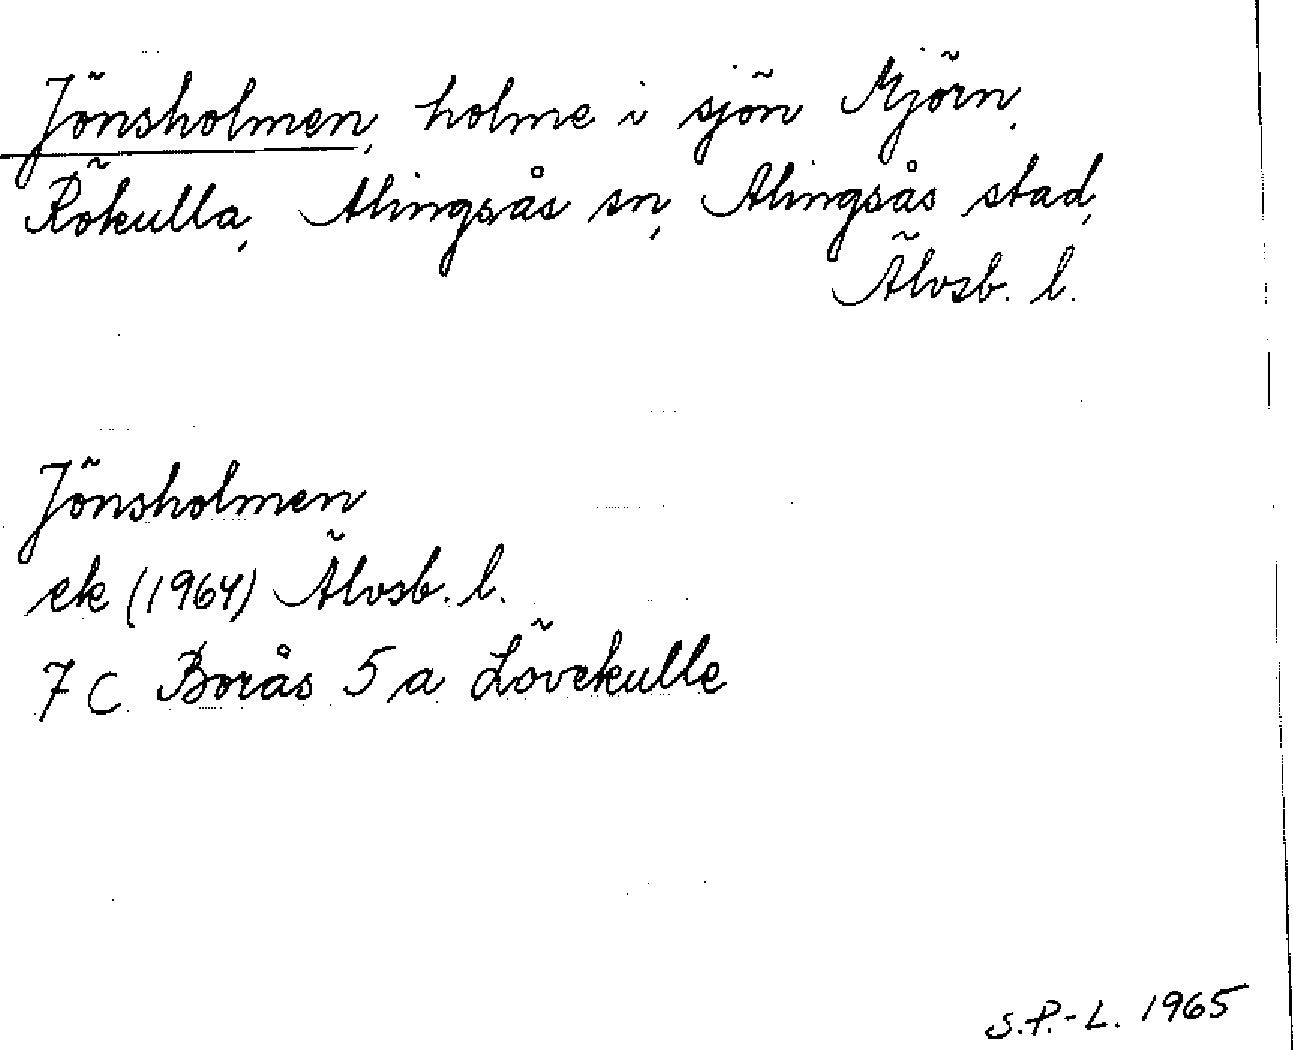 Jönsholmen, holme i sjön Mjörn,
Rökulla, Alingsås sn, Alingsås stad,
Älvsb. l.
Jönsholmen
ek (1964) Älvsb. l.
7 C Borås 5 a Lövekulle
S.P.-L. 1965